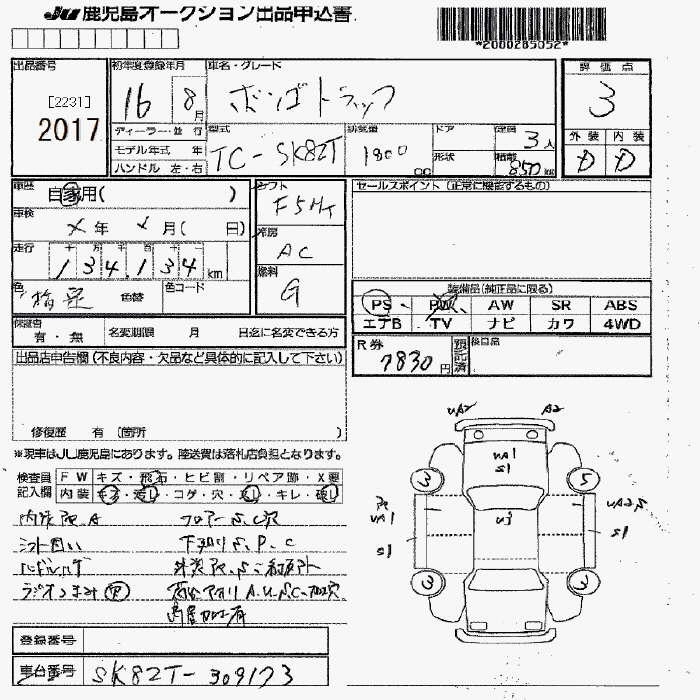 JU 鹿児島オークション出品申込書
*2000285052*
出品番号
[2231]
2017
初年度登録年月
16 8月
車名・グレード
ボンゴトラック
評価点
3
ディーラー・並行
モデル年式 年
ハンドル 左・右
型式
TC-SK82T
排気量
1800 CC
ドア
形状
定員
3人
積載
850
外装 内装
D D
車歴
自家用( )
車検
メ年 メ月( 日)
走行
十 万 千 百 十
134,134 km
色
色替
色コード
シフト
F5MT
冷房
AC
燃料
G
セールスポイント (正常に機能するもの)
装備品(純正品に限る)
PS PW AW SR ABS
エアB TV ナビ カワ 4WD
保証書
有・無
名変期限 月 日迄に名変できる方
R券
7830円
預託済
後日品
出品店申告欄 (不良内容・欠品など具体的に記入して下さい)
修復歴 有 (箇所 )
※現車はJU鹿児島にあります。陸送費は落札店負担となります。
検査員
記入欄
FW キズ・飛石・ヒビ割・リペア跡・X要
内装 キズ・汚レ・コゲ・穴・スレ・キレ・破レ
シフト固い
ラジオつまみ
下回りS,P,C
UA2 A2
UA1
S1
3 5
UA1
S1
S1
3 3
登録番号
車台番号 SK82T-309173